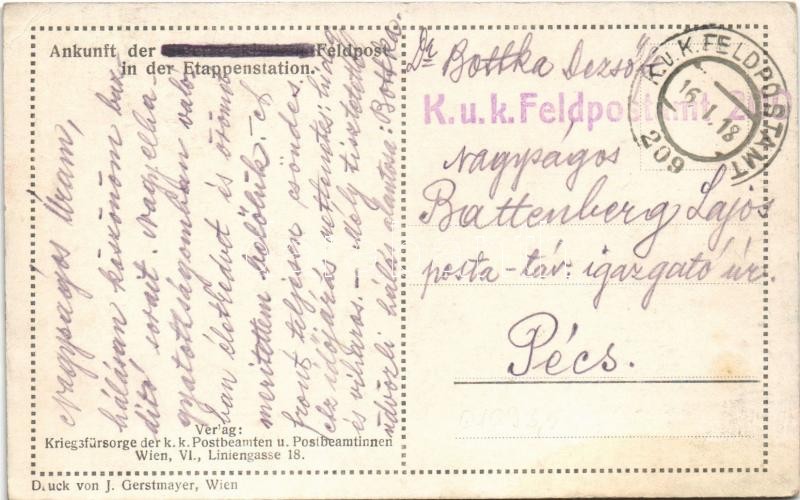 Ankunft der Feldpost
in der Etappenstation.
Nagyságos Uram,
hálásan köszönöm búz-
dító sorait. Nagy elha-
gyatottságomban való-
ban életkedvet és örömöt
merítettem belőlük. – A
front teljesen csöndes,
az időjárás rettenetes: hideg
és viharos. – Mély tisztelettel
üdvözli hálás alantosa: Bottka.
Verlag:
Kriegsfürsorge der k. k. Postbeamten u. Postbeamtinnen
Wien, VI., Liniengasse 18.
Druck von J. Gerstmayer, Wien
Dr Bottka Dezső
K.u.k. Feldpostamt 209
K.u.K. FELDPOSTAMT
16. I. 18
209
Nagyságos
Battenberg Lajos
posta-táv. igazgató úr.
Pécs.